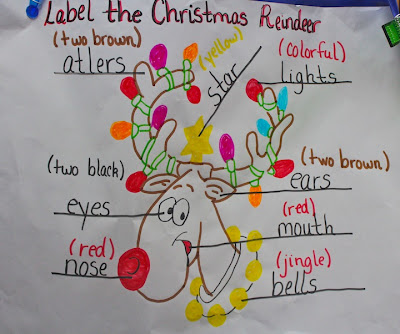 Label the Christmas Reindeer
(two brown)
atlers
(yellow)
star
(colorful)
lights
(two black)
eyes
(two brown)
ears
(red)
mouth
(red)
nose
(jingle)
bells